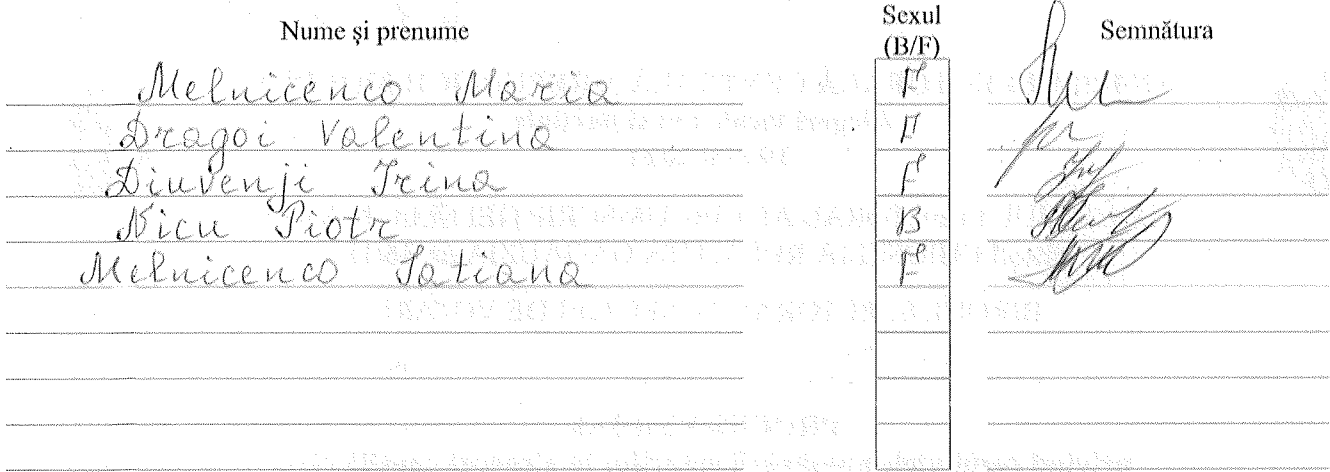 Nume și prenume Sexul (B/F) Semnătura
Melnicenco Maria F
Dragoi Valentina F
Diuvenji Irina F
Nicu Piotr B
Melnicenco Tatiana F